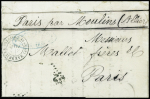 Paris par Moulins (Allier)
Messieurs
Wallet frères &
Paris